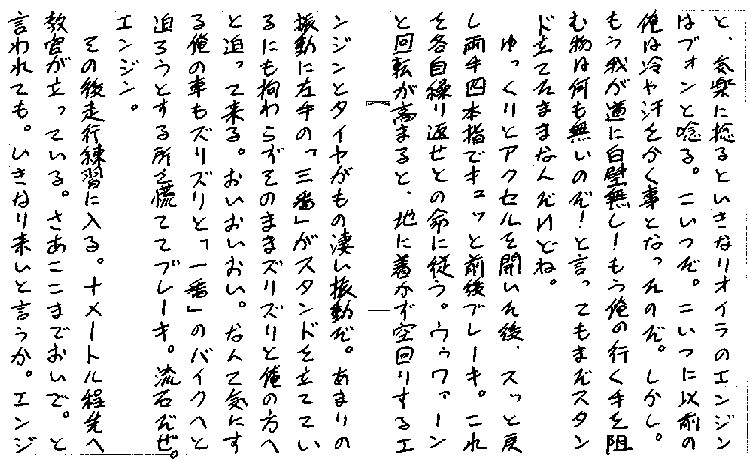 と、気楽に捻るといきなりオイラのエンジン
はブォンと唸る。こいつだ。こいつに以前の
俺は冷や汗をかく事となったのだ。しかし。
もう我が道に白壁無し!もう俺の行く手を阻
む物は何も無いのだ!と言ってもまだスタン
ド立てたままなんだけどね。
ゆっくりとアクセルを開いた後、スッと戻
し両手四本指でギュッと前後ブレーキ。これ
を各自繰り返せとの命に従う。ウゥワァーン
と回転が高まると、地に着かず空回りするエ
ンジンとタイヤがもの凄い振動だ。あまりの
振動に左手の「三番」がスタンドを立ててい
るにも拘わらずそのままズリズリと俺の方へ
と迫って来る。おいおいおい。なんて気にす
る俺の車もズリズリと「一番」のバイクへと
迫ろうとする所を慌ててブレーキ。流石だぜ。
エンジン。
その後走行練習に入る。十メートル程先へ
教官が立っている。さあここまでおいで。と
言われても。いきなり来いと言うか。エンジ